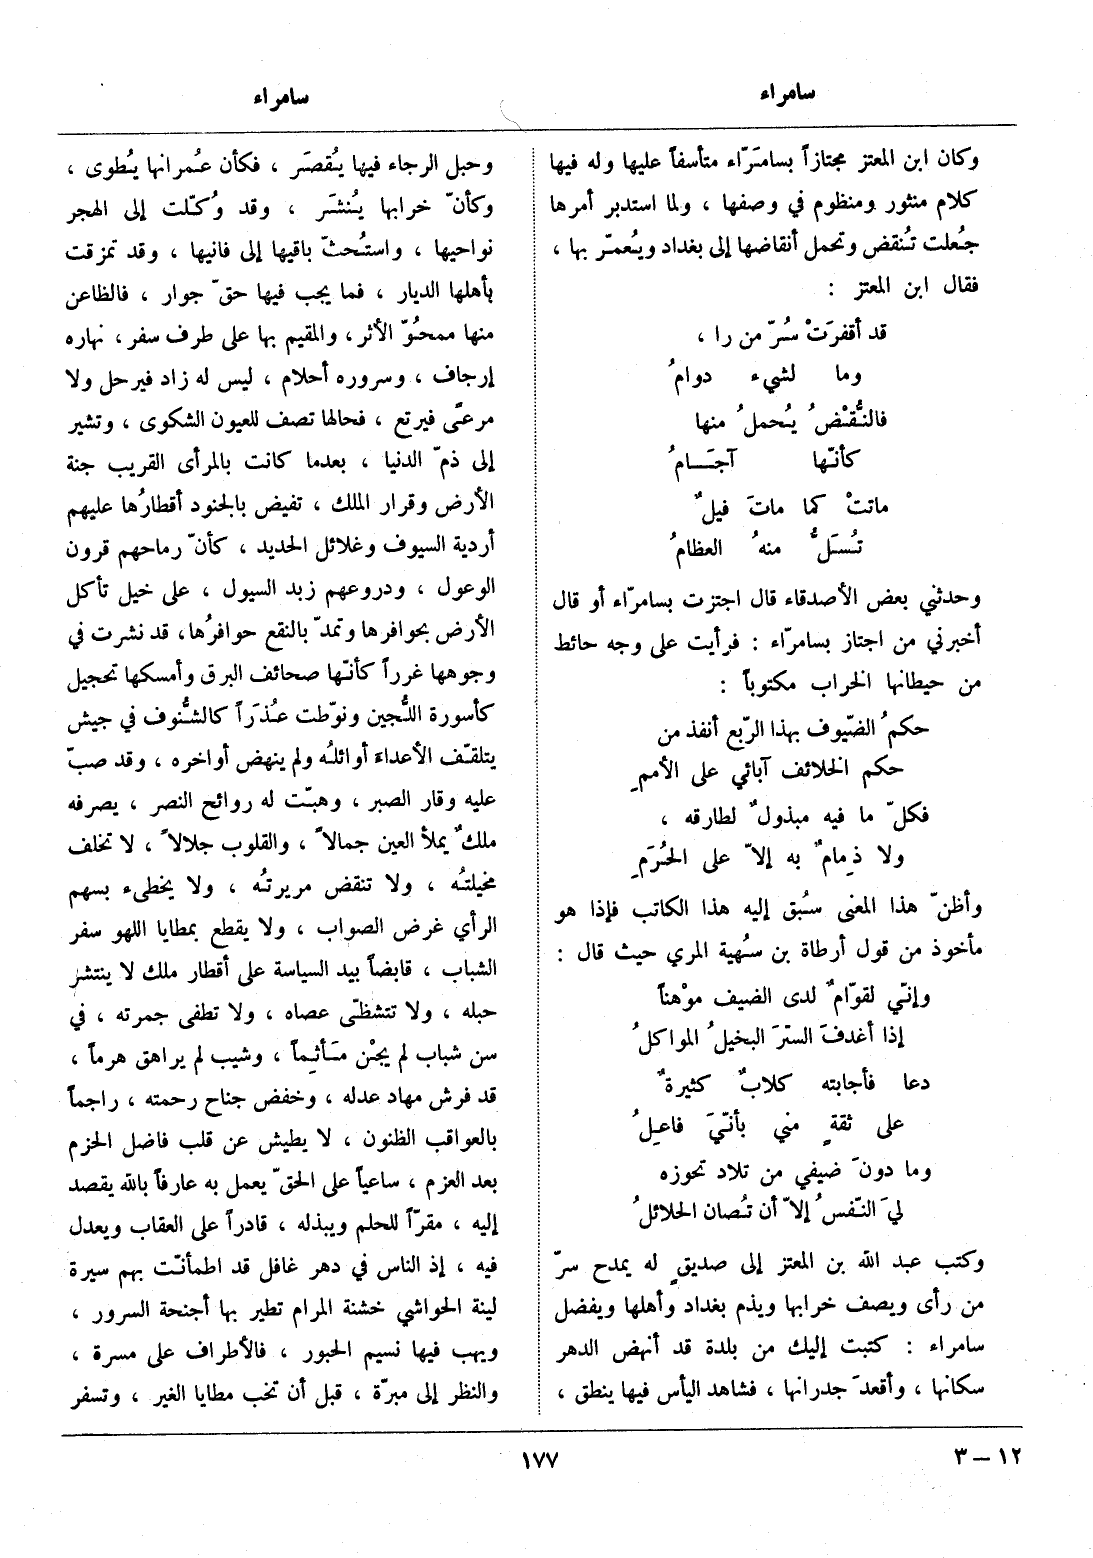 سامراء
سامراء
وكان ابن المعتز مجتازاً بسامَرّاء متأسفاً عليها وله فيها
كلام منثور ومنظوم في وصفها ، ولما استدبر أمرها
جُعلت تُنقض وتحمل أنقاضها إلى بغداد ويُعمّر بها ،
فقال ابن المعتز :
قد أقفرَتْ سُرّ من را ،
وما لشيء دوامُ
فالنُّقْضُ يُحملُ منها
كأنّها آجَامُ
ماتتْ كما ماتَ فيلٌ
تُسَلُّ منهُ العظامُ
وحدثني بعض الأصدقاء قال اجتزت بسامرّاء أو قال
أخبرني من اجتاز بسامرّاء : فرأيت على وجه حائط
من حيطانها الخراب مكتوباً :
حكمُ الضّيوف بهذا الرّبع أنفذ من
حكم الخلائف آبائي على الأممِ
فكلّ ما فيه مبذولٌ لطارقه ،
ولا ذِمامٌ به إلاّ على الحُرَمِ
وأظنّ هذا المعنى سُبق إليه هذا الكاتب فإذا هو
مأخوذ من قول أرطاة بن سُهية المري حيث قال :
وإنّي لقوّامٌ لدى الضيف موْهناً
إذا أغدفَ السترَ البخيلُ المواكلُ
دعا فأجابته كلابٌ كثيرةٌ
على ثقةٍ مني بأنّيَ فاعلُ
وما دونَ ضيفي من تلاد تحوزه
ليَ النّفسُ إلاّ أن تُصان الحلائلُ
وكتب عبد الله بن المعتز إلى صديقٍ له يمدح سرّ
من رأى ويصف خرابها ويذم بغداد وأهلها ويفضل
سامراء : كتبت إليك من بلدة قد أنهض الدهر
سكانها ، وأقعدَ جدرانها ، فشاهد اليأس فيها ينطق ،
وحبل الرجاء فيها يُقصَر ، فكأن عُمرانها يُطوى ،
وكأنّ خرابها يُنشَر ، وقد وُكّلت إلى الهجر
نواحيها ، واستُحثّ باقيها إلى فانيها ، وقد تمزقت
بأهلها الديار ، فما يجب فيها حقّ جوار ، فالظاعن
منها ممحُوّ الأثر ، والمقيم بها على طرف سفر ، نهاره
إرجاف ، وسروره أحلام ، ليس له زاد فيرحل ولا
مرعًى فيرتع ، فحالها تصف للعيون الشكوى ، وتشير
إلى ذمّ الدنيا ، بعدما كانت بالمرأى القريب جنة
الأرض وقرار الملك ، تفيض بالجنود أقطارُها عليهم
أردية السيوف وغلائل الحديد ، كأنّ رماحهم قرون
الوعول ، ودروعهم زبد السيول ، على خيل تأكل
الأرض بحوافرها وتمدّ بالنقع حوافرُها ، قد نشرت في
وجوهها غرراً كأنّها صحائف البرق وأمسكها تحجيل
كأسورة اللُّجين ونوّطت عُذَراً كالشُّنوف في جيش
يتلقّف الأعداء أوائلُه ولم ينهض أواخره ، وقد صبّ
عليه وقار الصبر ، وهبّت له روائح النصر ، يصرفه
ملكٌ يملأ العين جمالاً ، والقلوب جلالاً ، لا تخلف
مخيلتُه ، ولا تنقض مريرتُه ، ولا يخطىء بسهم
الرأي غرض الصواب ، ولا يقطع بمطايا اللهو سفر
الشباب ، قابضاً بيد السياسة على أقطار ملك لا ينتشر
حبله ، ولا تتشظّى عصاه ، ولا تطفى جمرته ، في
سن شباب لم يجْن مَأثِماً ، وشيب لم يراهق هرماً ،
قد فرش مهاد عدله ، وخفض جناح رحمته ، راجماً
بالعواقب الظنون ، لا يطيش عن قلب فاضل الحزم
بعد العزم ، ساعياً على الحقّ يعمل به عارفاً بالله يقصد
إليه ، مقرّاً للحلم ويبذله ، قادراً على العقاب ويعدل
فيه ، إذ الناس في دهر غافل قد اطمأنّت بهم سيرة
لينة الحواشي خشنة المرام تطير بها أجنحة السرور ،
ويهب فيها نسيم الحبور ، فالأطراف على مسرة ،
والنظر إلى مبرّة ، قبل أن تخب مطايا الغير ، وتسفر
١٧٧
١٢ – ٣